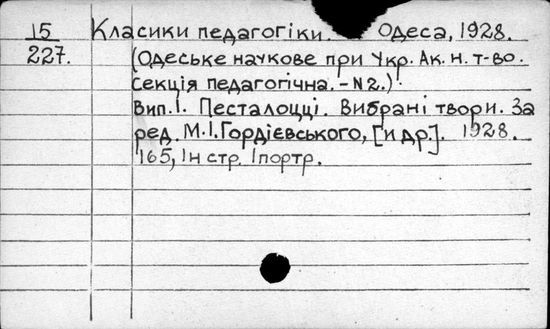 15 Класики педагогіки. Одеса, 1928.
227. (Одеське наукове при Укр. Ак. н. т-во.
Секція педагогічна. - N2.)
Вип. I. Песталоцці. Вибрані твори. За
ред. М.І. Гордієвського, [и др.]. 1928.
165, Iн стр. Iпортр.